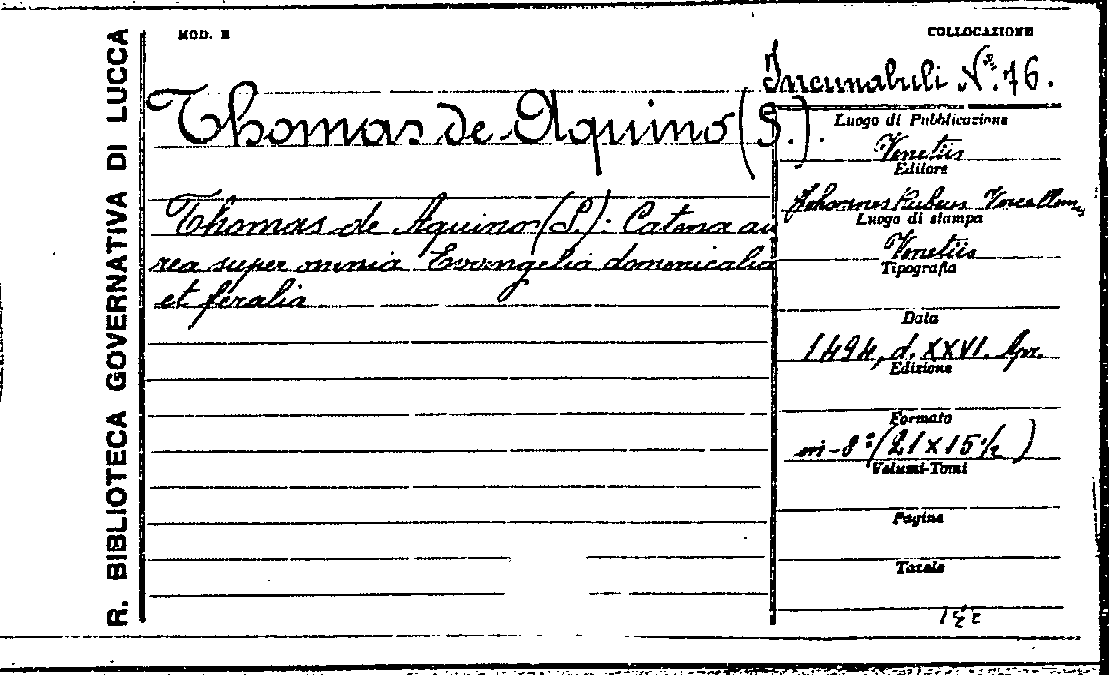 R. BIBLIOTECA GOVERNATIVA DI LUCCA
MOD. E
COLLOCAZIONE
Incunabuli N.º 76.
Thomas de Aquino (S.).
Thomas de Aquino (S.): Catena au
rea super omnia Evangelia domenicalia
et feralia
Luogo di Pubblicazione
Venetiis
Editore
Johannes Rubeus
Luogo di stampa
Venetiis
Tipografia
Data
1494, d. XXVI. Apr.
Edizione
Formato
in-8º (21 x 15 ½)
Volumi-Tomi
Pagine
Totale